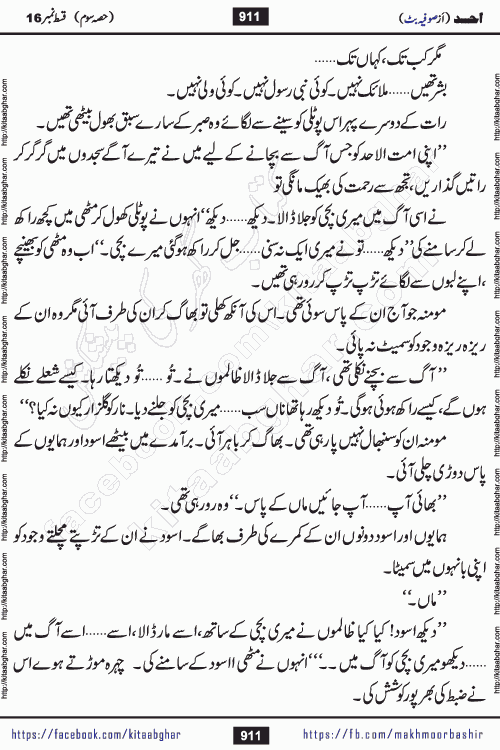 احد (از صوفیہ بٹ) 911 (حصہ سوم) قسط نمبر 16
مگر کب تک، کہاں تک......
بشر تھیں......ملائک نہیں۔ کوئی نبی رسول نہیں۔ کوئی ولی نہیں۔
رات کے دوسرے پہر اس پوٹلی کو سینے سے لگائے وہ صبر کے سارے سبق بھول بیٹھی تھیں۔
’’اپنی امت الاحد کو جس آگ سے بچانے کے لیے میں نے تیرے آگے سجدوں میں گر گر کر
راتیں گذاریں، تجھ سے رحمت کی بھیک مانگی تو
نے اسی آگ میں میری بچی کو جلا ڈالا۔ دیکھ......دیکھ‘‘ انہوں نے پوٹلی کھول کر مٹھی میں کچھ راکھ
لے کر سامنے کی ’’دیکھ......تو نے میری ایک نہ سنی......جل کر راکھ ہو گئی میرے بچی۔‘‘ اب وہ مٹھی کو بھینچے
،اپنے لبوں سے لگائے تڑپ تڑپ کر رو رہی تھیں۔
مومنہ جو آج ان کے پاس سوئی تھی۔ اس کی آنکھ کھلی تو بھاگ کر ان کی طرف آئی مگر وہ ان کے
ریزہ ریزہ وجود کو سمیٹ نہ پائی۔
’’آگ سے بچنے نکلی تھی، آگ سے جلا ڈالا ظالموں نے۔ تُو......تُو دیکھتا رہا۔ کیسے شعلے نکلے
ہوں گے، کیسے راکھ ہوئی ہوگی۔ تُو دیکھ رہا تھا ناں سب......میری بچی کو جلنے دیا۔ نار کو گلزار کیوں نہ کیا؟‘‘
مومنہ ان کو سنبھال نہیں پا رہی تھی۔ بھاگ کر باہر آئی۔ برآمدے میں بیٹھے اسود اور ہمایوں کے
پاس دوڑی چلی آئی۔
’’بھائی آپ......آپ جائیں ماں کے پاس۔‘‘ وہ رو رہی تھی۔
ہمایوں اور اسود دونوں ان کے کمرے کی طرف بھاگے۔ اسود نے ان کے تڑپتے مچلتے وجود کو
اپنی بانہوں میں سمیٹا۔
’’ماں۔‘‘
’’دیکھ اسود! کیا کیا ظالموں نے میری بچی کے ساتھ، اسے مار ڈالا، اسے......اسے آگ میں
......دیکھو میری بچی کو آگ میں۔۔‘‘‘ انہوں نے مٹھی ااسود کے سامنے کی۔ چہرہ موڑتے ہوے اس
نے ضبط کی بھرپور کوشش کی۔
https://facebook.com/kitaabghar 911 https://fb.com/makhmoorbashir
http://kitaabghar.com http://kitaabghar.com http://kitaabghar.com http://kitaabghar.com http://kitaabghar.com http://kitaabghar.com http://kitaabghar.com http://kitaabghar.com